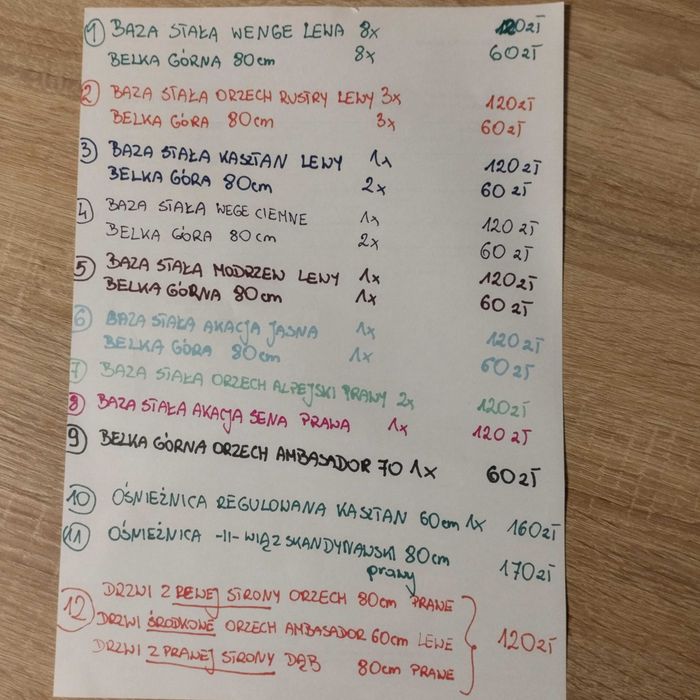 1 BAZA STAŁA WENGE LEWA 8x 120zł
BELKA GÓRNA 80cm 8x 60zł
2 BAZA STAŁA ORZECH RUSTRY LEWY 3x 120zł
BELKA GÓRA 80cm 3x 60zł
3 BAZA STAŁA KASZTAN LEWY 1x 120zł
BELKA GÓRA 80cm 2x 60zł
4 BAZA STAŁA WEGE CIEMNE 1x 120zł
BELKA GÓRA 80cm 2x 60zł
5 BAZA STAŁA MODRZEW LEWY 1x 120zł
BELKA GÓRNA 80cm 1x 60zł
6 BAZA STAŁA AKACJA JASNA 1x 120zł
BELKA GÓRA 80cm 1x 60zł
7 BAZA STAŁA ORZECH ALPEJSKI PRAWY 2x 120zł
8 BAZA STAŁA AKACJA SENA PRAWA 1x 120zł
9 BELKA GÓRNA ORZECH AMBASADOR 70 1x 60zł
10 OŚNIEŻNICA REGULOWANA KASZTAN 60cm 1x 160zł
11 OŚNIEŻNICA -II- WIĄZ SKANDYNAWSKI 80cm 170zł
prawy
DRZWI Z REWEJ STRONY ORZECH 80cm PRAWE
12 DRZWI ŚRODKOWE ORZECH AMBASADOR 60cm LEWE 120zł
DRZWI Z PRAWEJ STRONY DĄB 80cm PRAWE